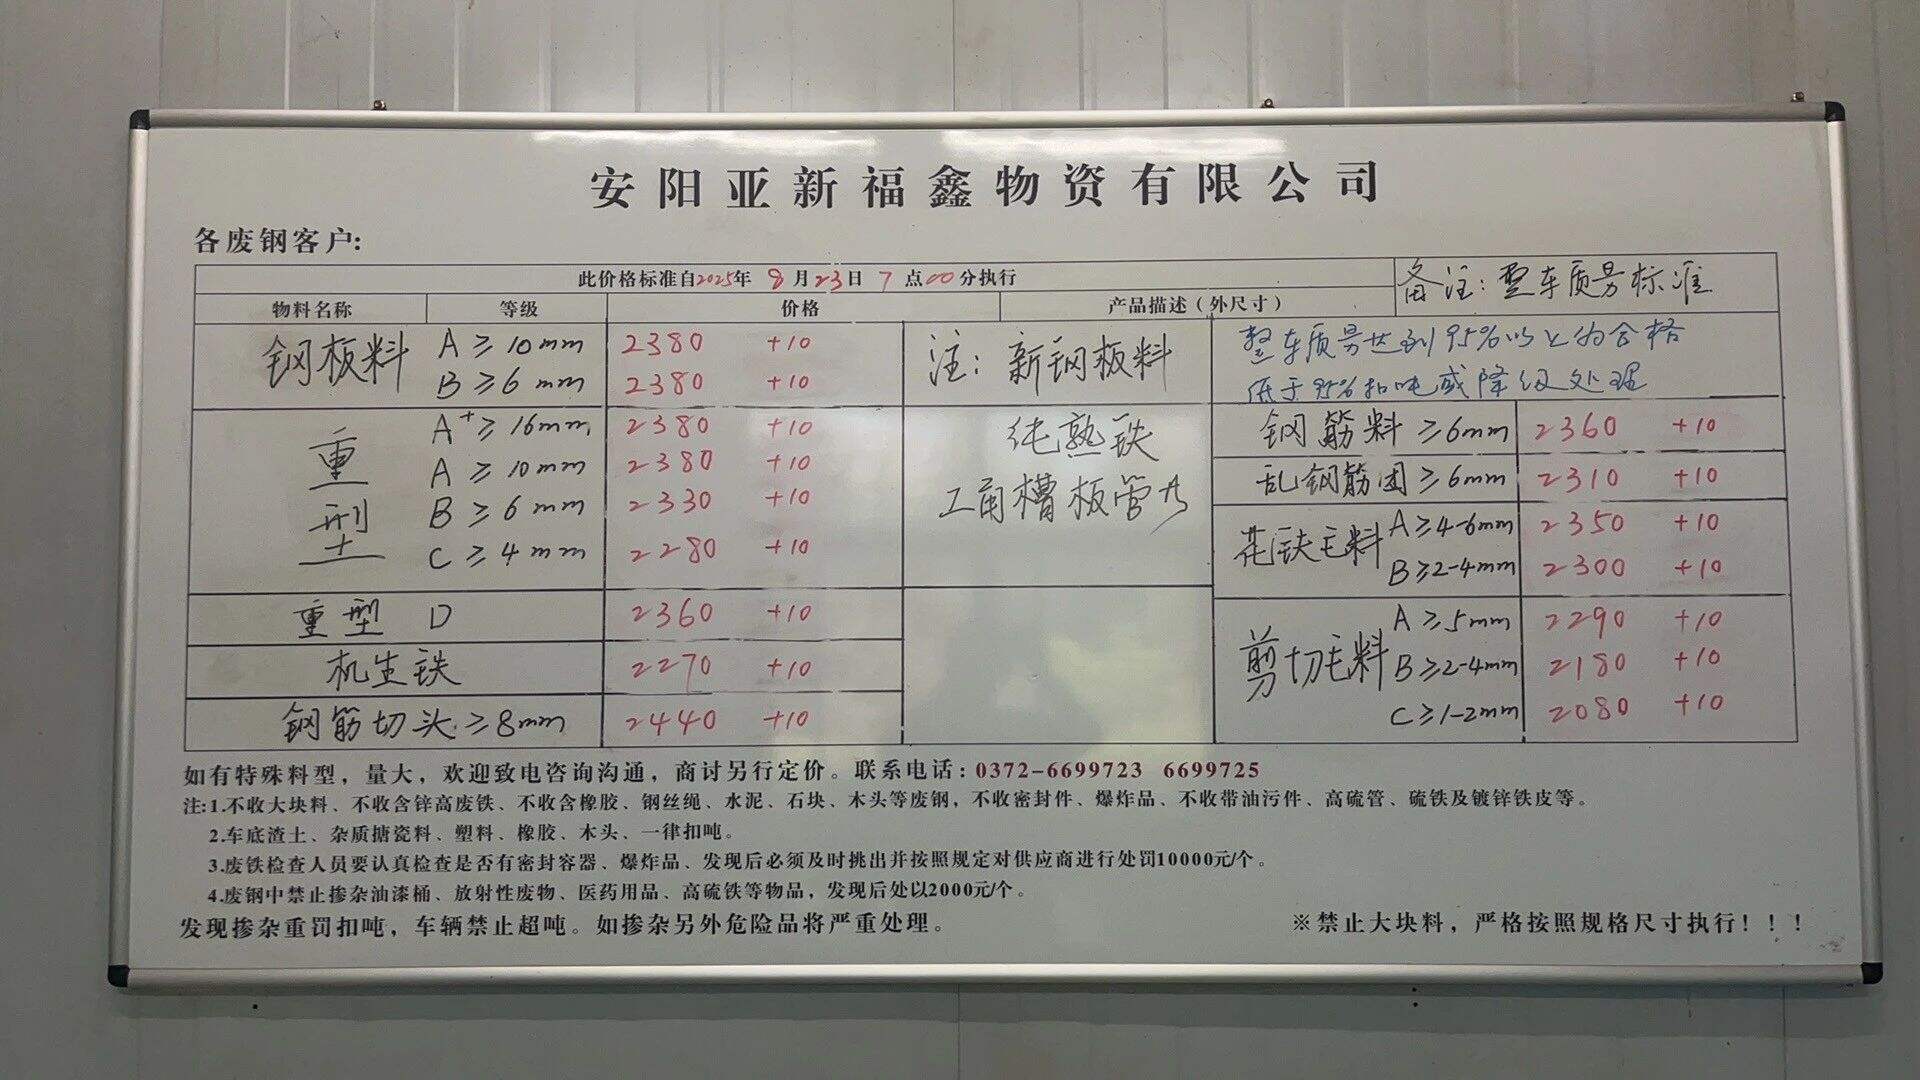 安阳亚新福鑫物资有限公司
各废钢客户:
此价格标准自2025年 8月23日 7点00分执行
备注:整车质量标准
物料名称 等级 价格 产品描述(外尺寸)
钢板料 A≥10mm 2380 +10
B≥6mm 2380 +10
注:新钢板料
整车质量达到95%以上为合格
低于95%扣吨或降级处理
重型 A+≥16mm 2380 +10
A≥10mm 2380 +10
B≥6mm 2330 +10
C≥4mm 2280 +10
纯熟铁
工角槽板管
钢筋料≥6mm 2360 +10
乱钢筋团≥6mm 2310 +10
花铁毛料 A≥4-6mm 2350 +10
B≥2-4mm 2300 +10
重型 D 2360 +10
机生铁 2270 +10
钢筋切头≥8mm 2440 +10
剪切毛料 A≥5mm 2290 +10
B≥2-4mm 2180 +10
C≥1-2mm 2080 +10
如有特殊料型，量大，欢迎致电咨询沟通，商讨另行定价。联系电话:0372-6699723 6699725
注:1.不收大块料、不收含锌高废铁、不收含橡胶、钢丝绳、水泥、石块、木头等废钢，不收密封件、爆炸品、不收带油污件、高硫管、硫铁及镀锌铁皮等。
2.车底渣土、杂质搪瓷料、塑料、橡胶、木头、一律扣吨。
3.废铁检查人员要认真检查是否有密封容器、爆炸品、发现后必须及时挑出并按照规定对供应商进行处罚10000元/个。
4.废钢中禁止掺杂油漆桶、放射性废物、医药用品、高硫铁等物品，发现后处以2000元/个。
发现掺杂重罚扣吨，车辆禁止超吨。如掺杂另外危险品将严重处理。
※禁止大块料，严格按照规格尺寸执行！！！